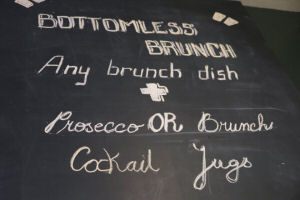 BOTTOMLESS
BRUNCH
Any brunch dish
+
Prosecco OR Brunch
Cockail Jugs